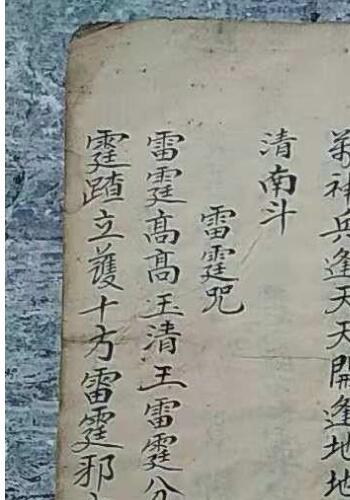 神兵逢天天開逢地地
清南斗
雷霆咒
雷霆高高玉清王雷霆
霆踏立護十方雷霆邪